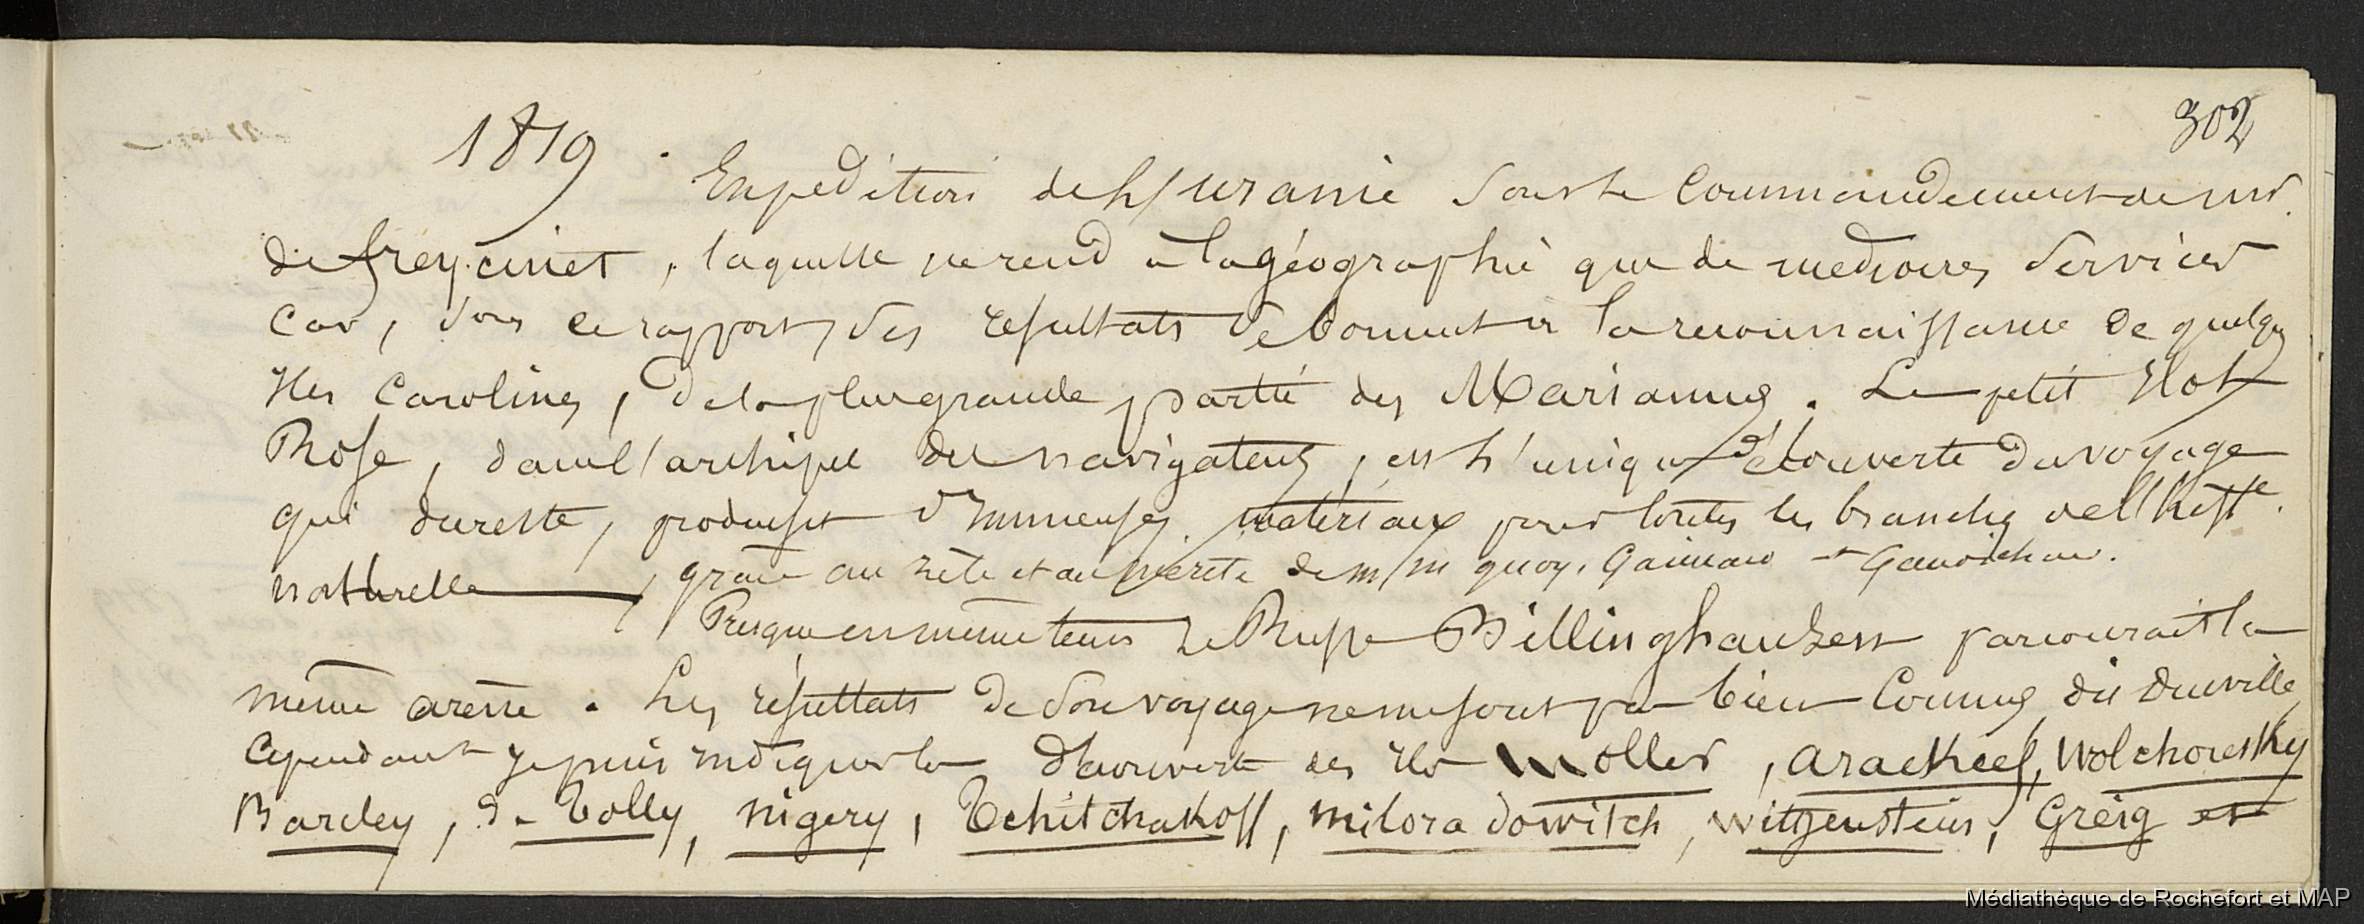 302
1819. Expedition de l'uranie sous le Commandement de mr.
de freycinet, laquelle ne rend a la géographie que de mediocres services
car, sous ce rapport, ses resultats se bornent a la reconnaissance de quelqs
Iles Carolines, de la plus grande partie des Mariannes. Le petit Ilot
Rose, dans l'archipel des navigateurs, est l'unique découverte du voyage
qui dureste, produisit d'Immenses materiaux pour toutes les branches de l'histre.
naturelle, grace au zèle et au merite de m/m quoy, Gaimard et Gaudichau.
Presque en même tems le Russe Billinghausen parcourait la
même arene. Les résultats de son voyage ne me sont pas bien Connus dit Durville
Cependant je puis indiquer la découverte des Iles Moller, arackeef, Wolchonsky
Barcley, de Tolly, nigery, Tchitchakoff, miloradowitch, wittgenstein, Greig et
Médiathèque de Rochefort et MAP